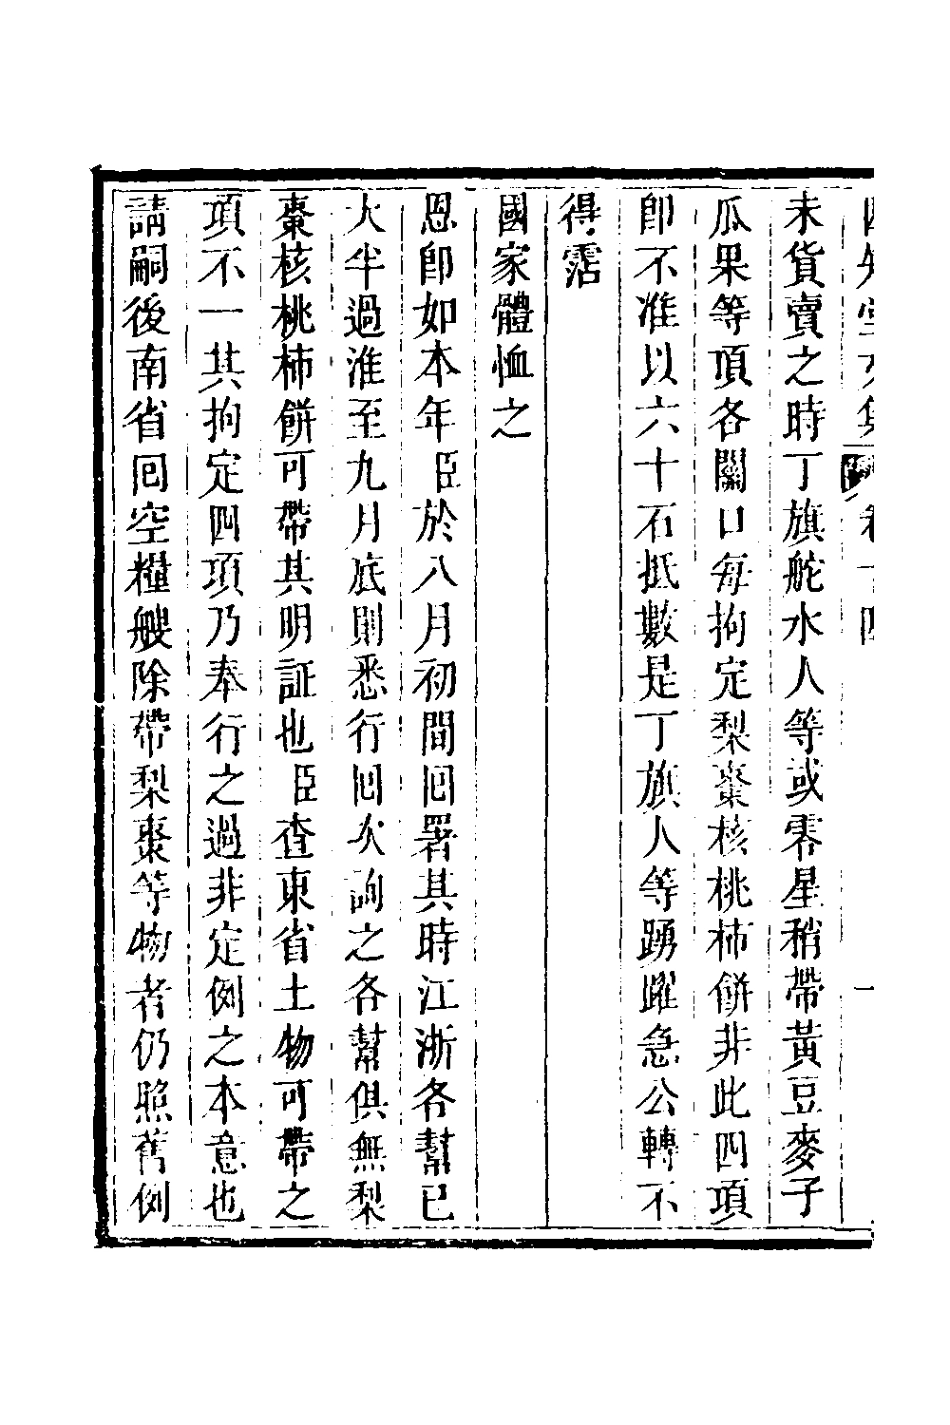 未貨賣之時丁旗舵水人等或零星稍帶黃豆麥子
瓜果等項各關口每拘定梨棗核桃柿餅非此四項
卽不准以六十石抵數是丁旗人等踴躍急公轉不
得霑
國家體恤之
恩卽如本年臣於八月初間囘署其時江浙各幫已
大半過淮至九月底則悉行囘次詢之各幫俱無梨
棗核桃柿餅可帶其明証也臣查東省土物可帶之
項不一其拘定四項乃奉行之過非定例之本意也
請嗣後南省囘空糧艘除帶梨棗等物者仍照舊例